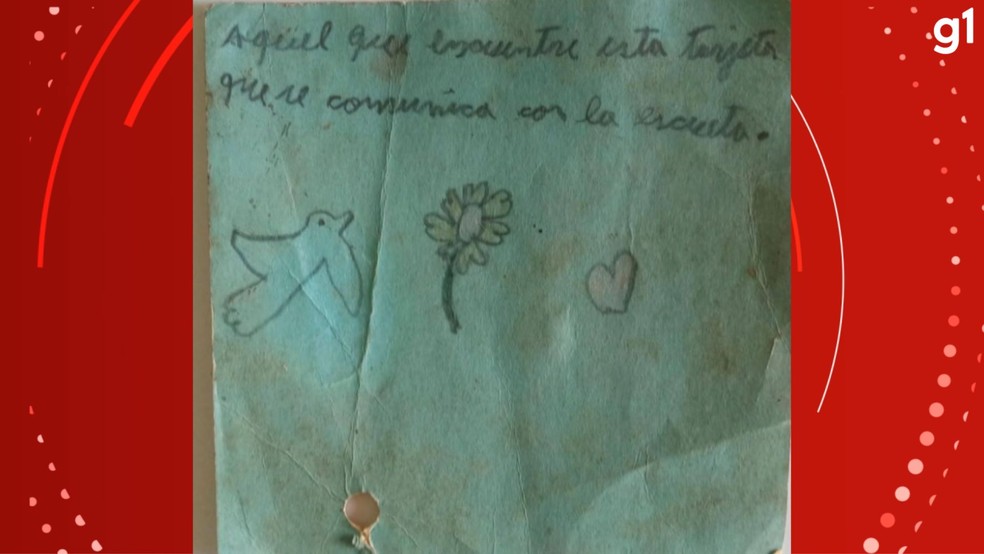 g1
Aquel que encuentre esta tarjeta
que se comunica con la escuela.